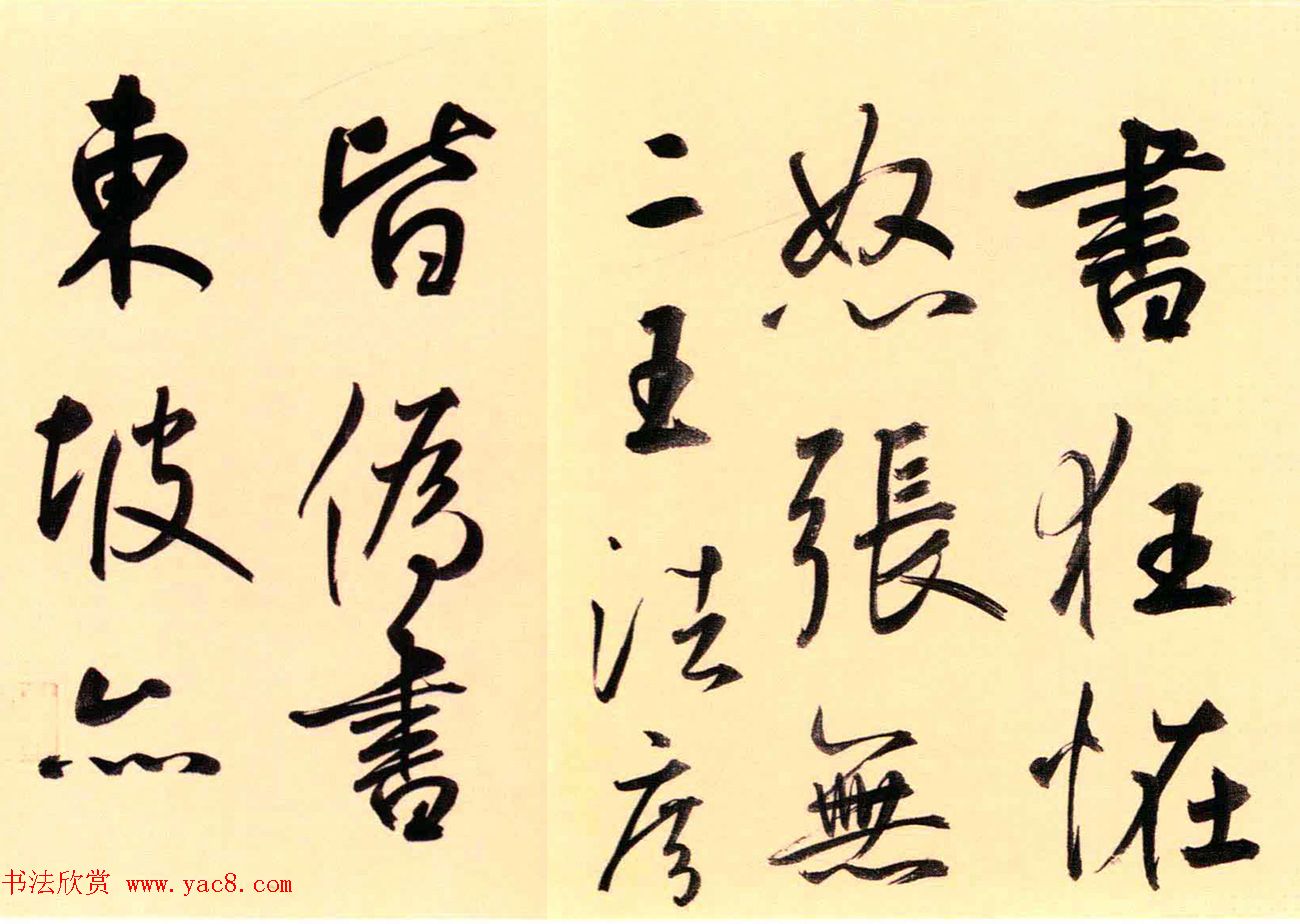 書狂恠
怒張無
二王法度
皆偽書
東坡亦
书法欣赏 www.yac8.com